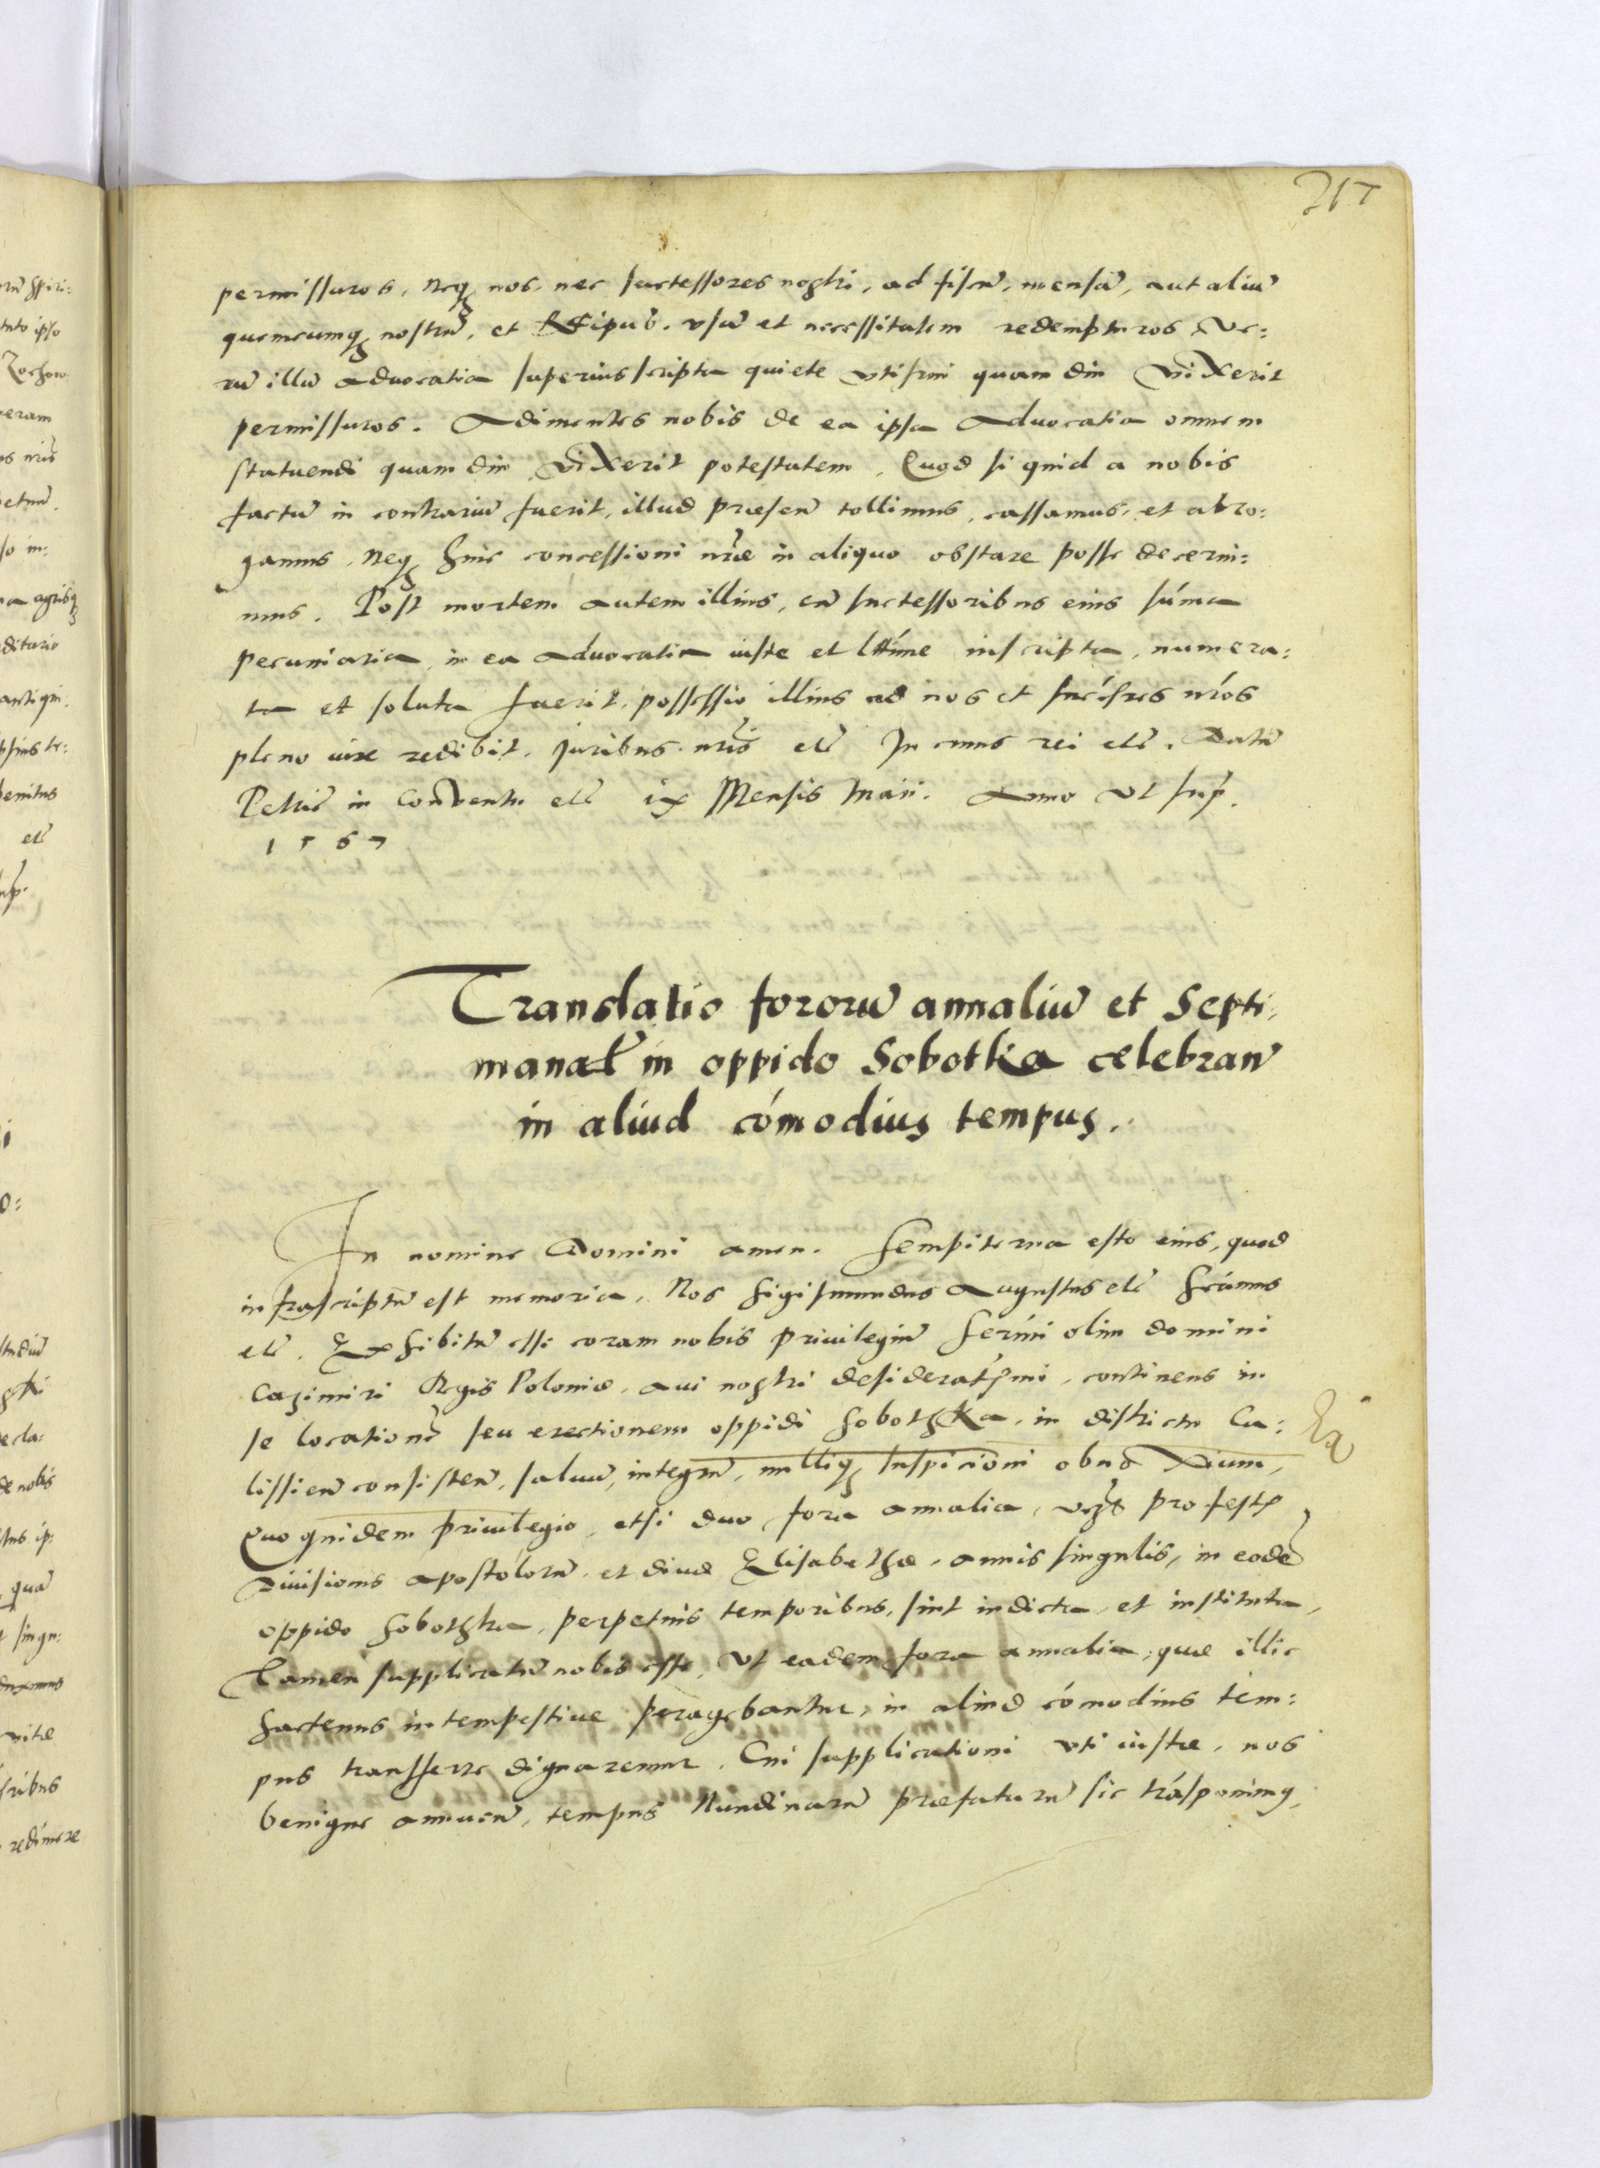 217
permissuros, Neq₃ nos, nec successores nostri, ad fiscū, mensā, aut aliū
quemcumq₃ nostrū, et Reipub. vsū et necessitatem redempturos Ve:
rū illū aduocatia superius scripta quiete vti frui quam diu vixerit
permissuros. Adimentes nobis de ea ipsa Aduocatia omnem
statuendi quam diu vixerit potestatem. Quod si quid a nobis
factū in contrariū fuerit, illud præsen̄ tollimus, cassamus, et abro:
gamus, Neq₃ huic concessioni nr̄æ in aliquo obstare posse decerni:
mus. Post mortem autem illius, cū successoribus eius sūma
pecuniaria, in ea aduocatia iuste et lttime inscripta, numera:
ta et soluta fuerit, possessio illius ad nos et succ̄sores nr̄os
pleno iure redibit. Juribus nr̄is etc̄ In cuius rei etc̄. Datū
Petric̄ in Conventu etc̄ ix Mensis Maii. Anno vt sup̄.
1567
Translatio fororū annaliū et Septi:
manal̄ in oppido Sobotka celebran̄
in aliud cōmodius tempus.
In nomine Domini amen. Sempiterna esto eius, quod
infrascriptū est memoria. Nos Sigismundus Augustus etc̄ Scimus
etc̄. Exhibitū esse coram nobis priuilegiū Serm̄i olim domini
Cazimiri Regis Poloniæ, aui nostri desideratissimi, continens in
se locationē seu erectionem oppidi Sobothka, in districtu Ca:
lissien̄ consisten̄, saluū, integrū, nulliq₃ suspicioni obnoxium,
Quo quidem priuilegio, etsi duo fora annalia, vc̄z pro festis
Diuisionis apostolorū, et diuæ Elisabethæ, annis singulis, in eodē
oppido Sobothka, perpetuis temporibus, sint indicta, et instituta,
Tamen supplicatū nobis esse, vt eadem fora annalia, quæ illic
hactenus intempestiue peragebantur, in aliud cōmodius tem:
pus transferre dignaremur. Cui supplicationi vti iustæ, nos
benigne annuen̄, tempus Nundinarū præfatarū sic trāsponimus,